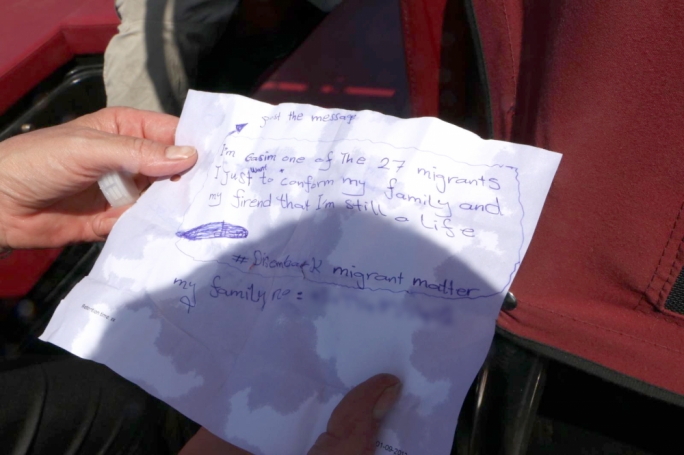 print the message
I'm Gasim one of The 27 migrants
I just want to conform my family and
my firend that I'm still a life
# migrant matter
my family no: